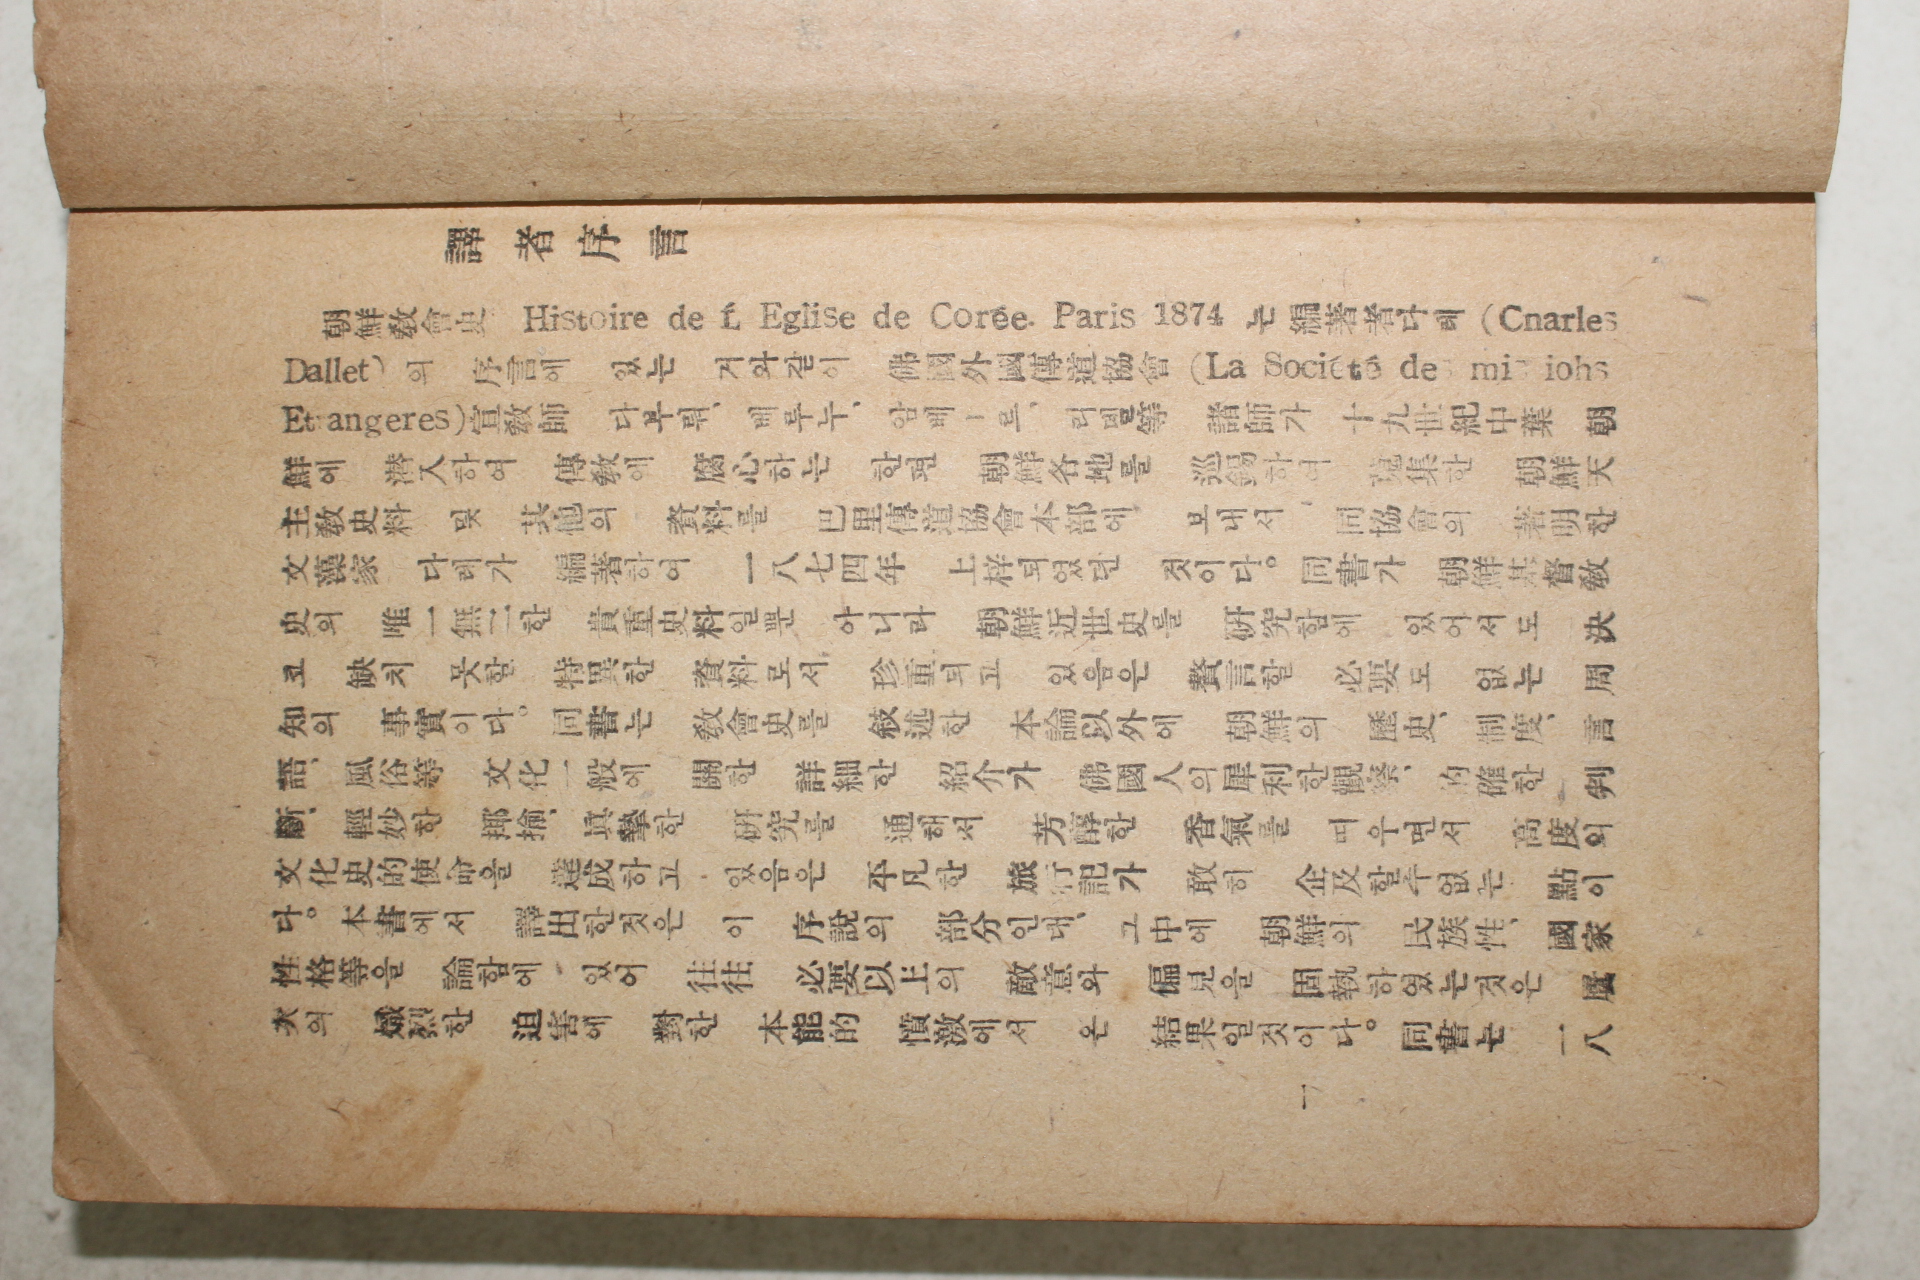 譯者序言
朝鮮敎會史 Histoire de f. Eglise de Corée. Paris 1874 는 編著者다레 (Cnarles
Dallet) 의 序言에 있는 거와같이 佛國外國傳道協會 (La Société de mi iohs
Etrangeres)宣敎師 다부뤼、베루누、암베ー르、리델等 諸師가 十九世紀中葉 朝
鮮에 潜入하여 傳敎에 腐心하는 한편 朝鮮各地를 巡錫하여 蒐集한 朝鮮天
主敎史料 및 其他의 資料를 巴里傳道協會本部에 보내서、同協會의 著明한
文藻家 다레가 編著하여 一八七四年 上梓되였던 것이다。同書가 朝鮮基督敎
史의 唯一無二한 貴重史料일뿐 아니라 朝鮮近世史를 硏究함에 있어서도 決
코 缺치 못할 特異한 資料로서 珍重되고 있음은 贅言할 必要도 없는 周
知의 事實이다。同書는 敎會史를 敍述한 本論以外에 朝鮮의 歷史、制度、言
語、風俗等 文化一般에 關한 詳細한 紹介가 佛國人의犀利한觀察、的確한 判
斷、輕妙한 揶揄、眞摯한 硏究를 通해서 芳醇한 香氣를 띠우면서 高度의
文化史的使命을 達成하고 있음은 平凡한 旅行記가 敢히 企及할수없는 點이
다。本書에서 譯出한것은 이 序說의 部分인대、그中에 朝鮮의 民族性、國家
性格等을 論함에 있어 往往 必要以上의 敵意와 偏見을 固執하였는것은 屢
次의 熾烈한 迫害에 對한 本能的 憤激에서 온 結果일것이다。同書는 一八
一